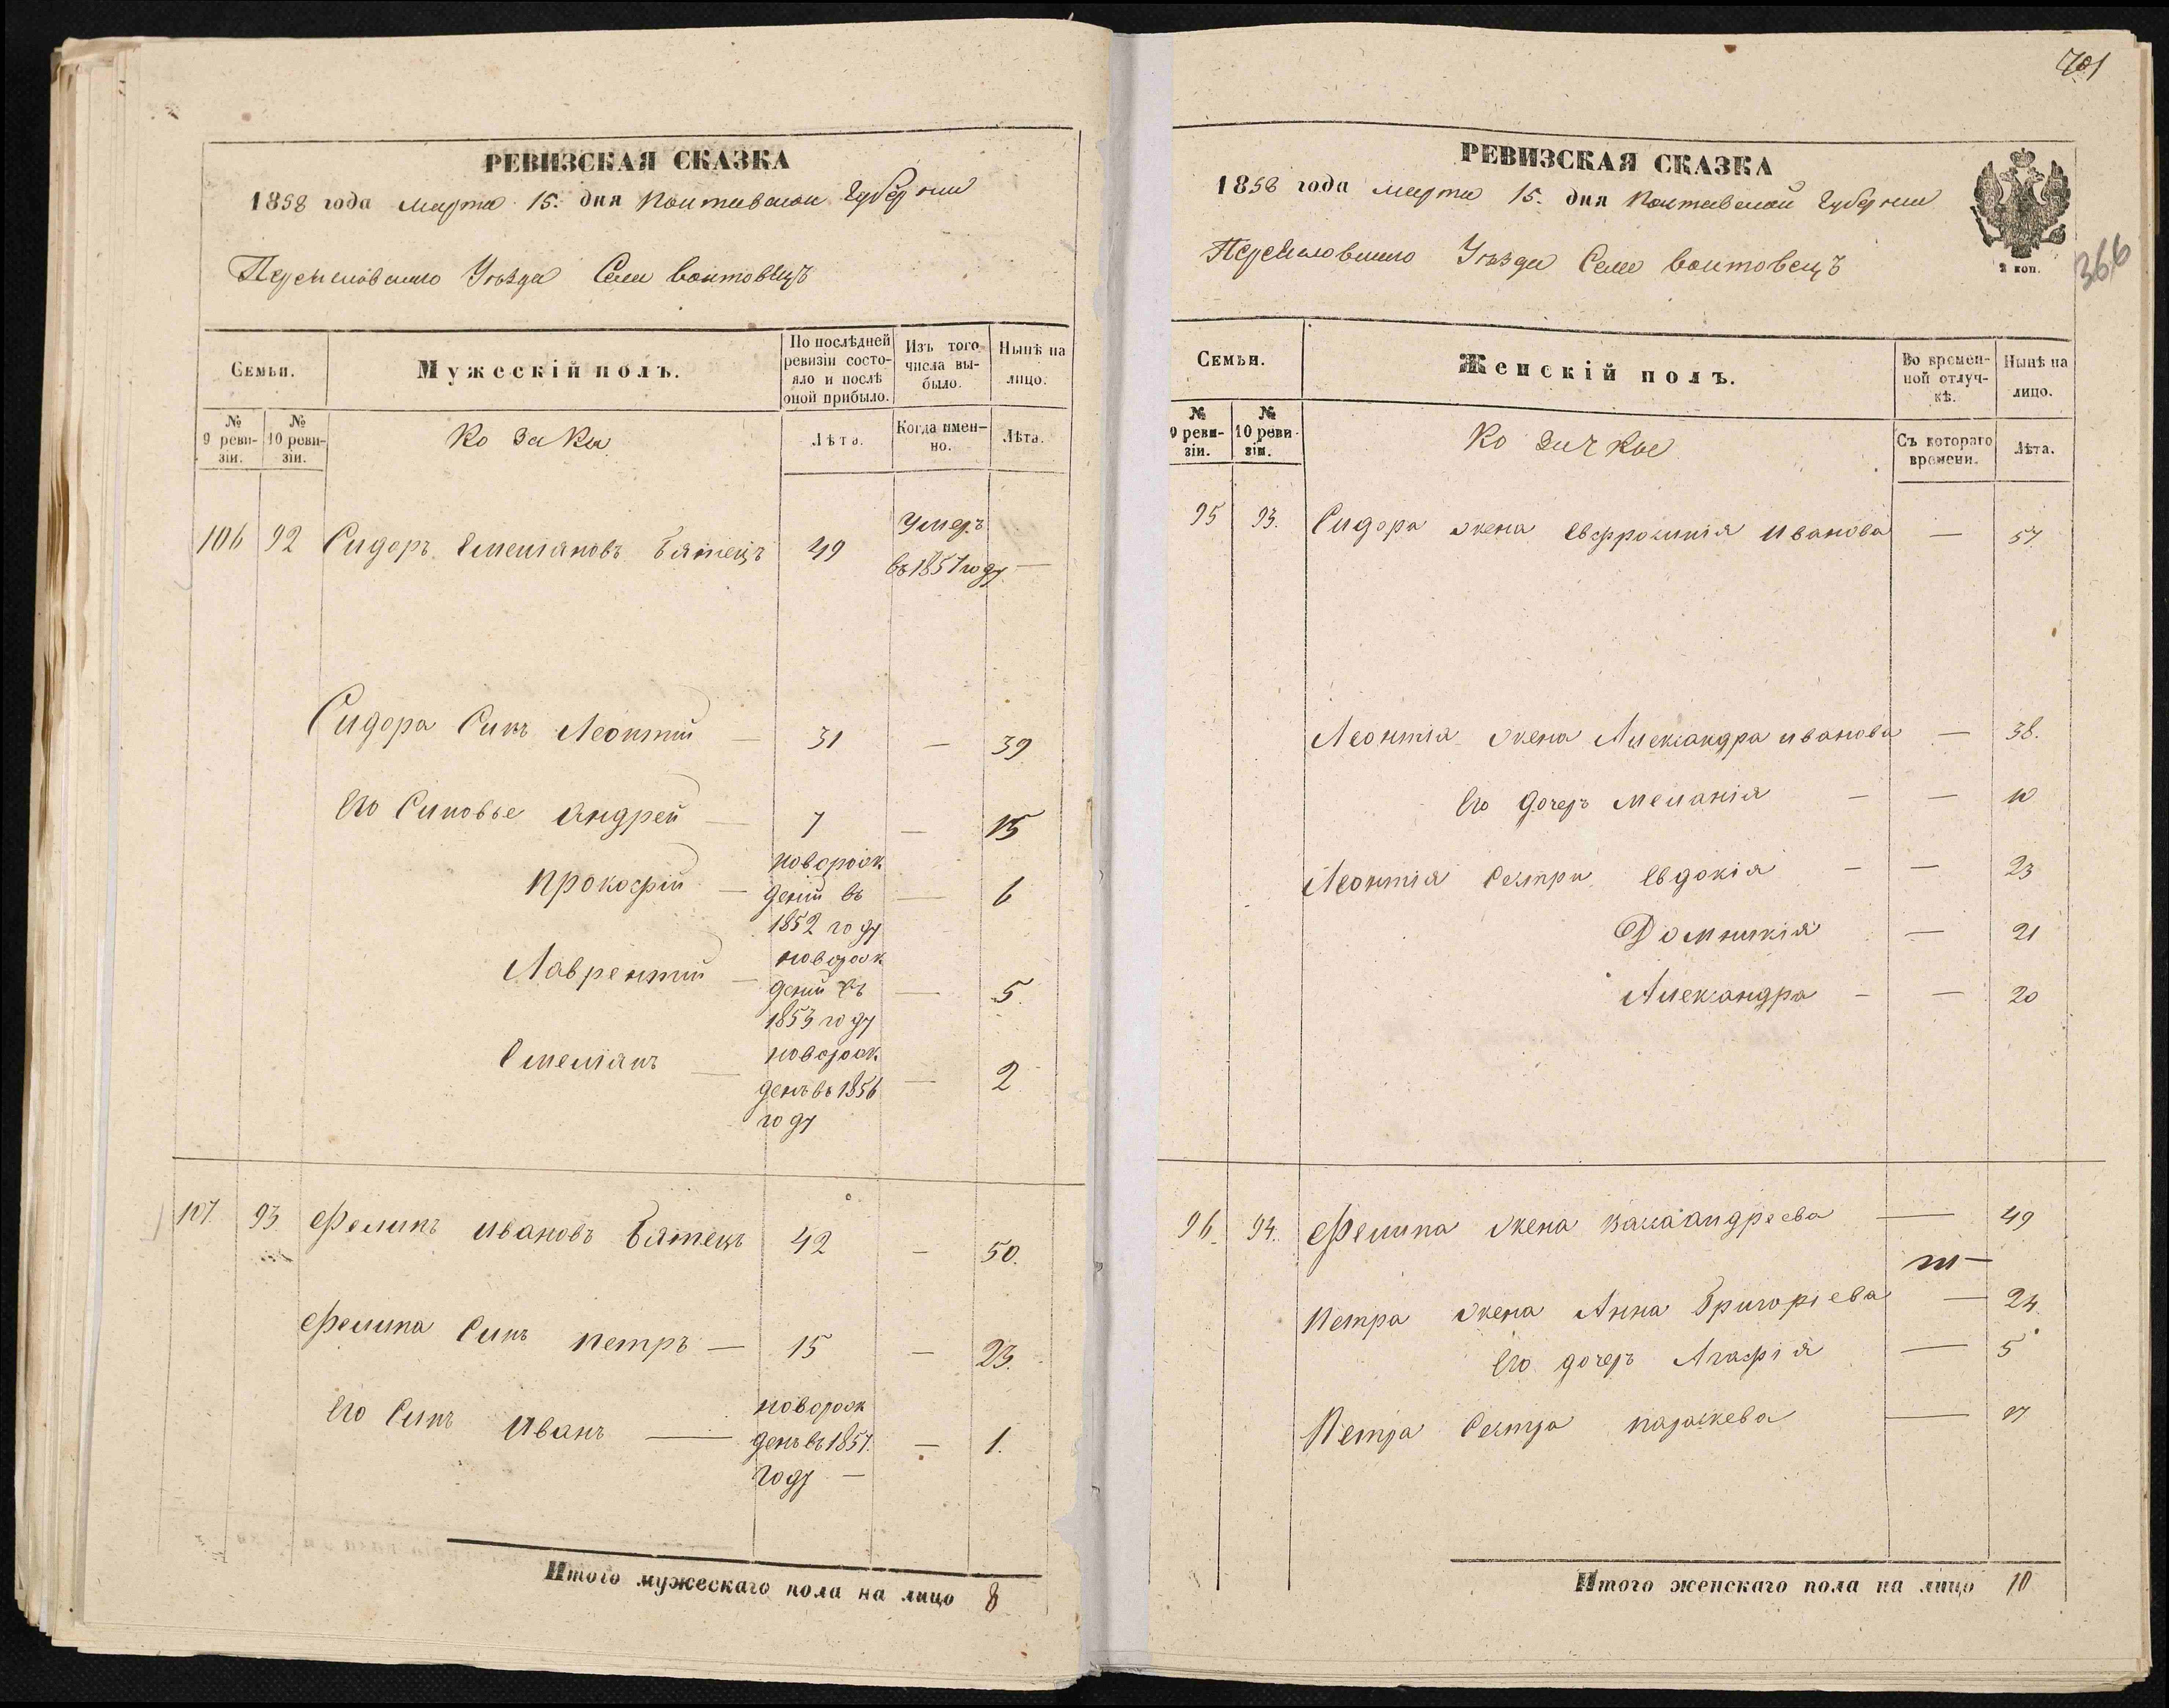 РЕВИЗСКАЯ СКАЗКА
1858 года Марта 15. дня Полтавской Губернии
Переяславского Уѣзда Села Воитовецъ
Семьи.
Мужескій полъ.
По послѣдней ревизіи состояло и послѣ оной прибыло.
Изъ того числа выбыло.
Нынѣ на лицо.
№ 9 ревизіи.
№ 10 ревизіи.
Козаки
Лѣта.
Когда именно.
Лѣта.
106 92 Сидоръ Емеліановъ Бятецъ 49 Умеръ въ 1857 году —
Сидора Синъ Леонтий — 31 — 39
Его Синовье Андрей — 7 — 15
Прокофій — новорожденій въ 1852 году — 6
Лаврентий — новорожденій въ 1853 году — 5.
Емеліанъ — новорожденъ въ 1856 году — 2
107. 93 Филипъ Ивановъ Бятецъ 42 — 50.
Филипа Синъ Петръ — 15 — 23.
Его Синъ Иванъ — новорожденъ въ 1857. году — — 1.
Итого мужескаго пола на лицо 8
701
366
РЕВИЗСКАЯ СКАЗКА
1858 года Марта 15. дня Полтавской Губернии
Переяславского Уѣзда Села Воитовецъ
2 коп.
Семьи.
Женскій полъ.
Во временной отлучкѣ.
Нынѣ на лицо.
№ 9 ревизіи.
№ 10 ревизіи.
Козачкы
Съ котораго времени.
Лѣта.
95 93. Сидора жена Евфросинія Иванова — 57.
Леонтія жена Александра Иванова — 38.
Его дочеръ Меланія — — 10
Леонтія Сестри Евдокія — — 23
Домникія — 21
Александра — — 20
96. 94. Филипа жена Васса Андреева — 49
Петра жена Анна Григоріева — 24.
Его дочеръ Агафія — 5
Петра Сестра Параскева — 17
Итого женскаго пола на лицо 10